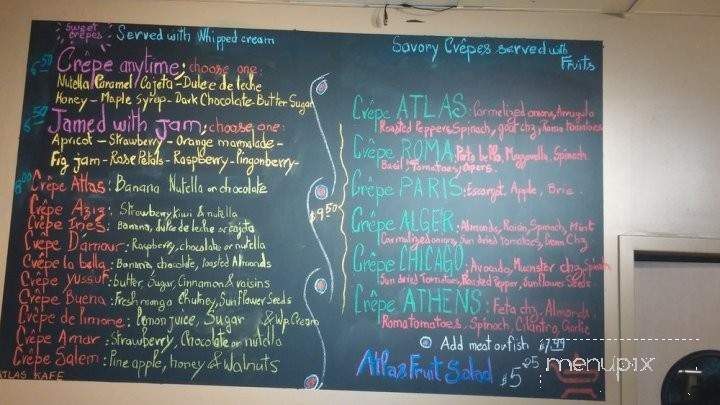 Sweet crêpes: Served with Whipped cream
6.50 Crêpe anytime: choose one:
Nutella Caramel - Cajeta - Dulce de leche
Honey - Maple Syrup - Dark Chocolate - Butter Sugar
6.50 Jamed with Jam: choose one:
Apricot - Strawberry - Orange marmalade -
Fig jam - Rose Petals - Raspberry - Lingonberry -
Crêpe Atlas: Banana Nutella or chocolate
Crêpe Aziz: Strawberry kiwi & nutella
Crêpe Ines: Banana, dulce de leche or cajeta
Crêpe Damour: Raspberry, chocolate or nutella
Crêpe la bella: Banana, chocolate, toasted Almonds
Crêpe Yussuf: butter, Sugar, Cinnamon & raisins
Crêpe Buena: Fresh mango Chutney, SunFlower Seeds
Crêpe de limone: Lemon juice, Sugar & Wp. Cream
Crêpe Amar: Strawberry, Chocolate or nutella
Crêpe Salem: Pine apple, honey & Walnuts
ATLAS KAFE
Savory Crêpes served with
Fruits
$9.50
Crêpe ATLAS: Carmelized onions, Arrugula
Roasted Peppers, Spinach, goat chz, Roma Tomatoes
Crêpe ROMA: Porto bello, Mozzarella, Spinach
Basil, Tomatoes, Capers.
Crêpe PARIS: Escargot, Apple, Brie.
Crêpe ALGER: Almonds, Raisin, Spinach, Mint
Carmelized onions, Sun dried tomatoes, Chz
Crêpe CHICAGO: Avocado, Muenster chz, Spinach
Sun dried Tomatoes, Roasted Pepper, Sunflower Seeds
Crêpe ATHENS: Feta chz, Almonds,
Roma tomatoes, Spinach, Cilantro, Garlic
Add meat or fish $1.99
Atlas Fruit Salad $5.25
menupix